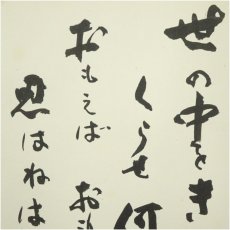 世の中をき
くらせ何
おもえば おも
忍はねは